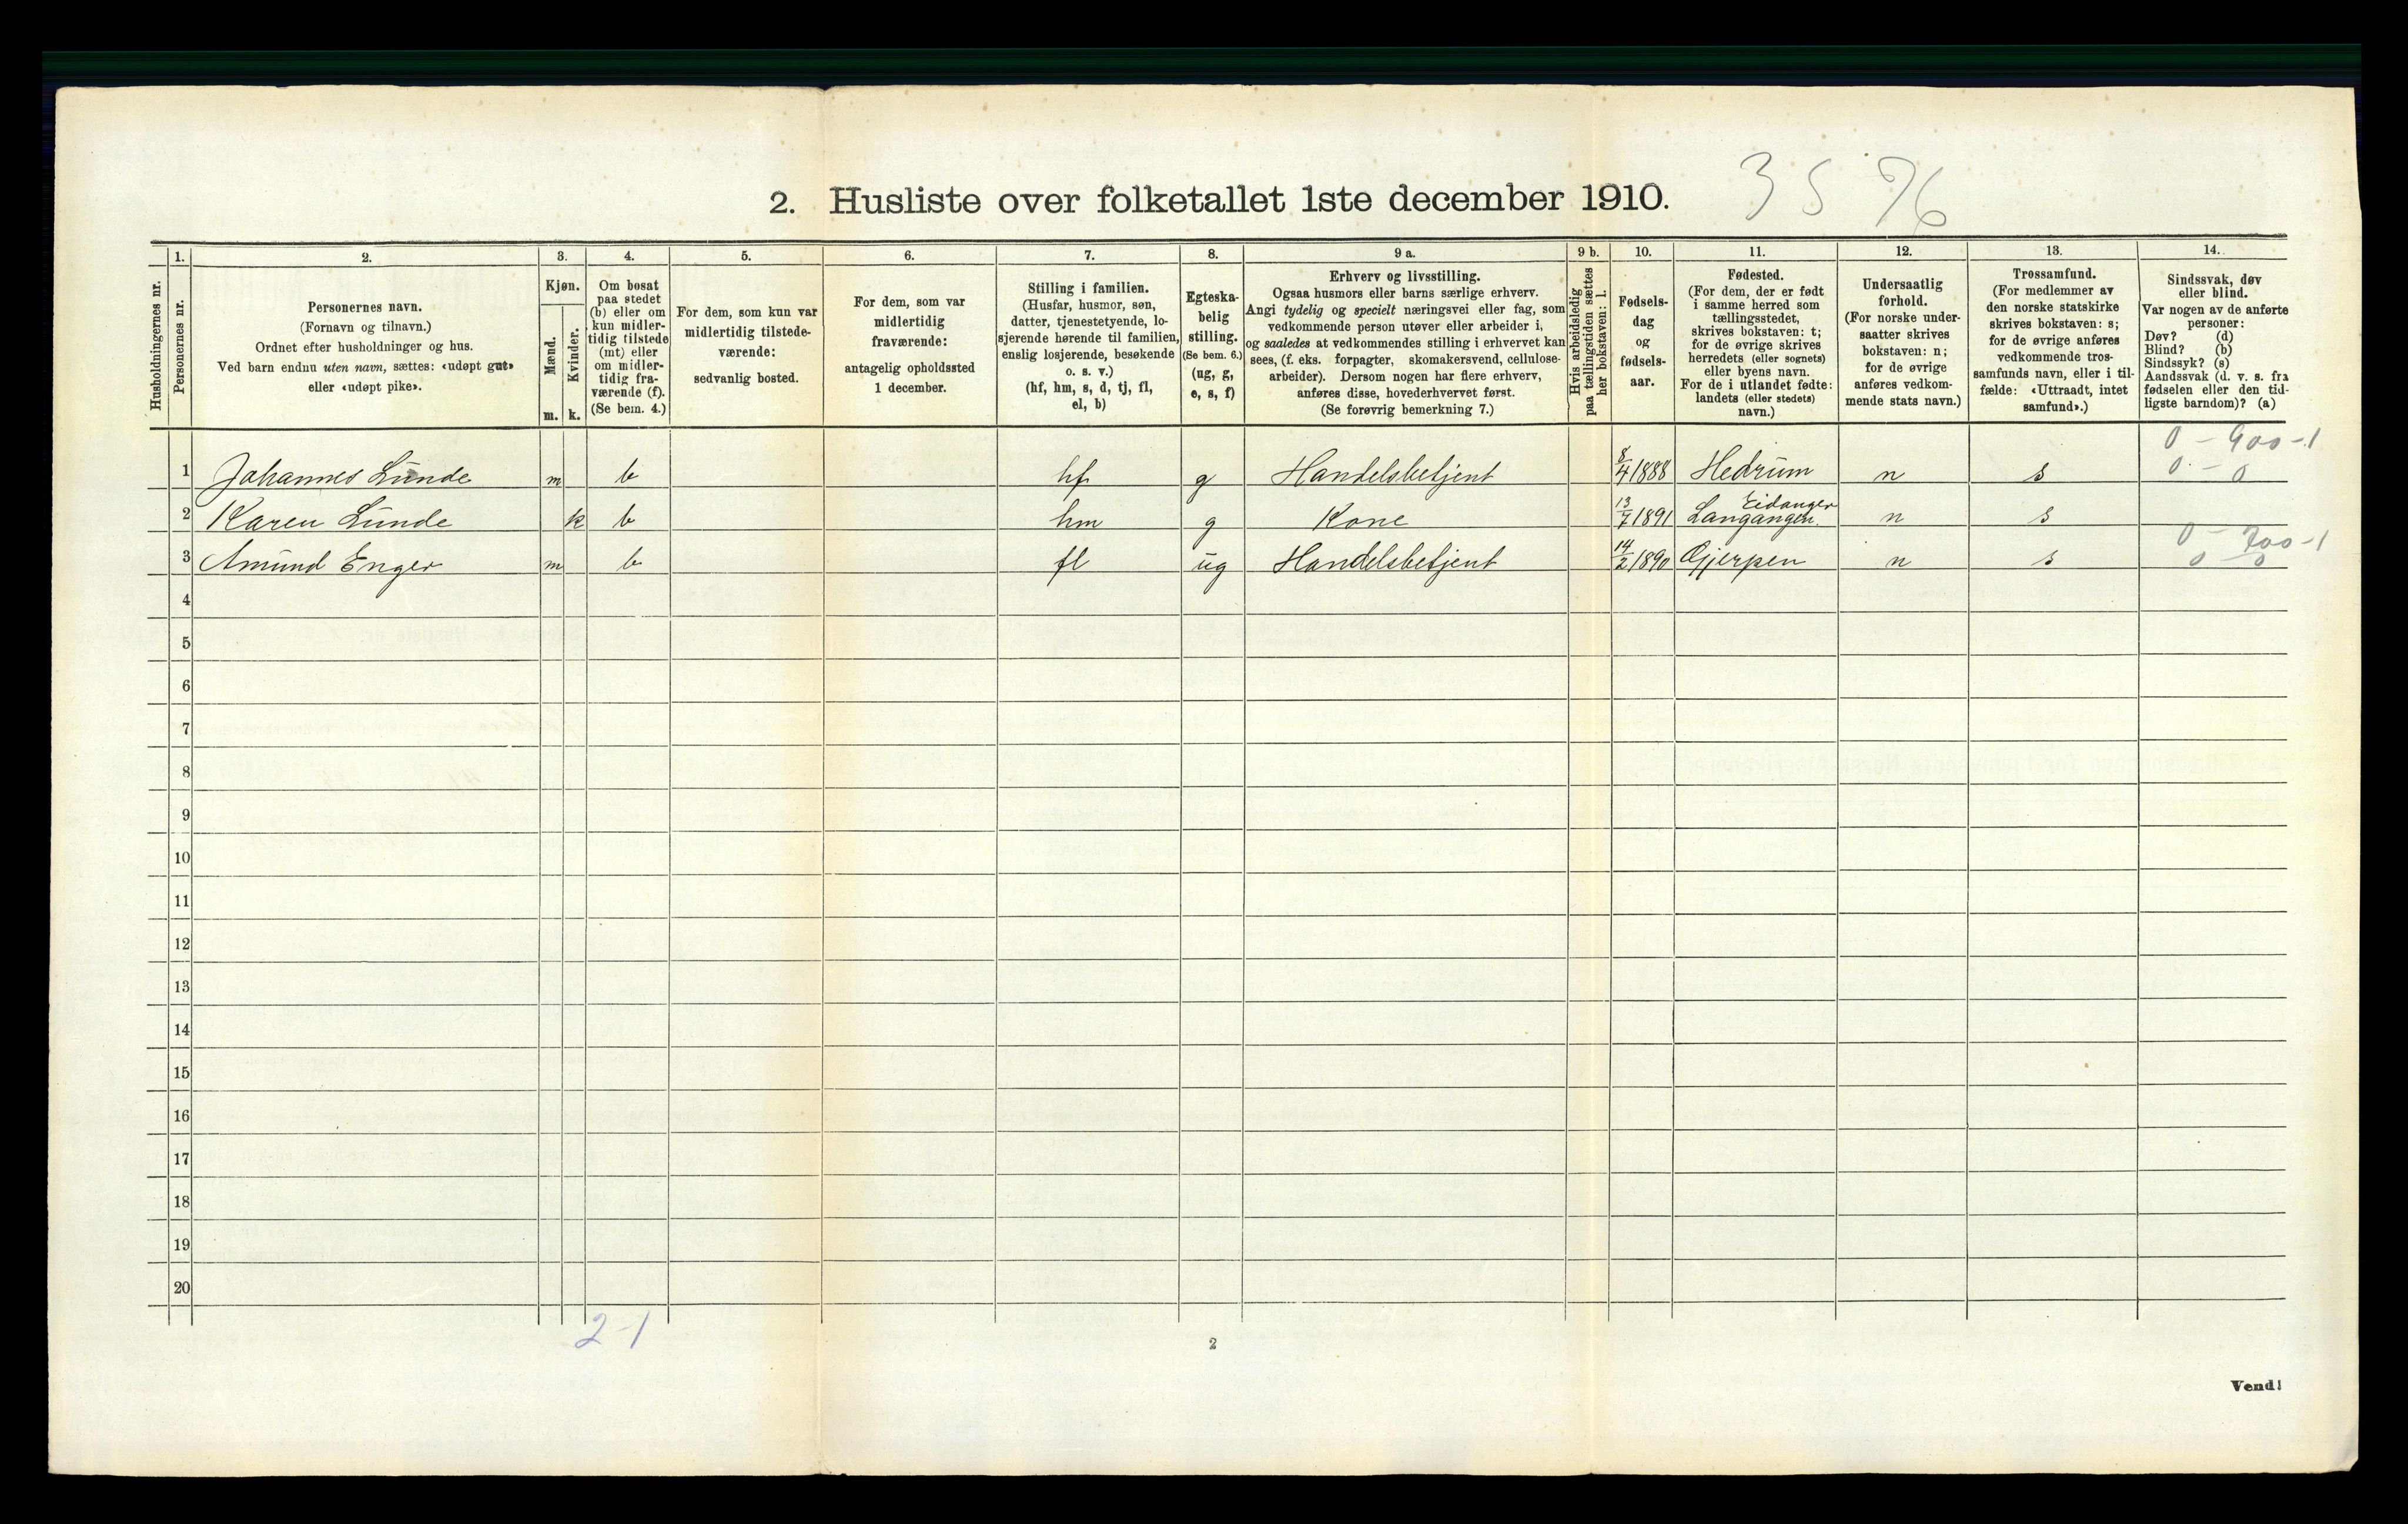 2. Husliste over folketallet 1ste december 1910.
3 5 76
Husholdningernes nr.
1.
Personernes nr.
2.
Personernes navn.
(Fornavn og tilnavn.)
Ordnet efter husholdninger og hus.
Ved barn endnu uten navn, sættes: «udøpt gut»
eller «udøpt pike».
3.
Kjøn.
Mænd.
m.
Kvinder.
k.
4.
Om bosat
paa stedet
(b) eller om
kun midler-
tidig tilstede
(mt) eller
om midler-
tidig fra-
værende (f).
(Se bem. 4.)
5.
For dem, som kun var
midlertidig tilstede-
værende:
sedvanlig bosted.
6.
For dem, som var
midlertidig
fraværende:
antagelig opholdssted
1 december.
7.
Stilling i familien.
(Husfar, husmor, søn,
datter, tjenestetyende, lo-
sjerende hørende til familien,
enslig losjerende, besøkende
o. s. v.)
(hf, hm, s, d, tj, fl,
el, b)
8.
Egteska-
belig
stilling.
(Se bem. 6.)
(ug, g,
e, s, f)
9 a.
Erhverv og livsstilling.
Ogsaa husmors eller barns særlige erhverv.
Angi tydelig og specielt næringsvei eller fag, som
vedkommende person utøver eller arbeider i,
og saaledes at vedkommendes stilling i erhvervet kan
sees, (f. eks. forpagter, skomakersvend, cellulose-
arbeider). Dersom nogen har flere erhverv,
anføres disse, hovederhvervet først.
(Se forøvrig bemerkning 7.)
9 b.
Hvis arbeidsledig
paa tællingstiden sættes
her bokstaven: l.
10.
Fødsels-
dag
og
fødsels-
aar.
11.
Fødested.
(For dem, der er født
i samme herred som
tællingsstedet,
skrives bokstaven: t;
for de øvrige skrives
herredets (eller sognets)
eller byens navn.
For de i utlandet fødte:
landets (eller stedets)
navn.)
12.
Undersaatlig
forhold.
(For norske under-
saatter skrives
bokstaven: n;
for de øvrige
anføres vedkom-
mende stats navn.)
13.
Trossamfund.
(For medlemmer av
den norske statskirke
skrives bokstaven: s;
for de øvrige anføres
vedkommende tros-
samfunds navn, eller i til-
fælde: «Uttraadt, intet
samfund».)
14.
Sindssvak, døv
eller blind.
Var nogen av de anførte
personer:
Døv? (d)
Blind? (b)
Sindssyk? (s)
Aandssvak (d. v. s. fra
fødselen eller den tid-
ligste barndom)? (a)
0 - 900 - 1
1 Johannes Lunde m b hf g Handelsbetjent 8/4 1888 Hedrum n s 0 - 0
Eidanger
2 Karen Lunde k b hm g Kone 13/7 1891 Langangen. n s
0 - 700 - 1
3 Amund Enger m b fl ug Handelsbetjent 14/2 1890 Gjerpen n s 0 - 0
4
5
6
7
8
9
10
11
12
13
14
15
16
17
18
19
20
2-1
2
Vend!